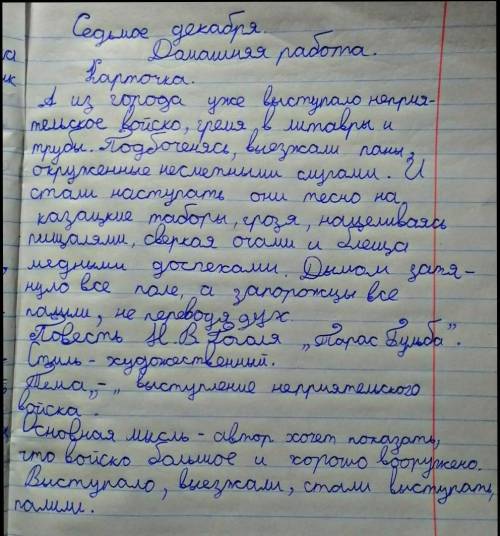 Седьмое декабря.
Домашняя работа.
Карточка.
А из города уже выступало неприя-
тельское войско, гремя в литавры и
трубы. Подбоченясь, выезжали паны,
окруженные несметными слугами. И
стали наступать они тесно на
казацкие таборы, грозя, нацеливаясь
пищалями, сверкая очами и блеща
медными доспехами. Дымом затя-
нуло все поле, а запорожцы все
палили, не переводя дух.
Повесть Н.В Гоголя „Тарас Бульба".
Стиль - художественный.
Тема „-„ выступление неприятельского
войска.
Основная мысль - автор хочет показать,
что войско большое и хорошо вооружено.
Выступало, выезжали, стали выступать,
палили.